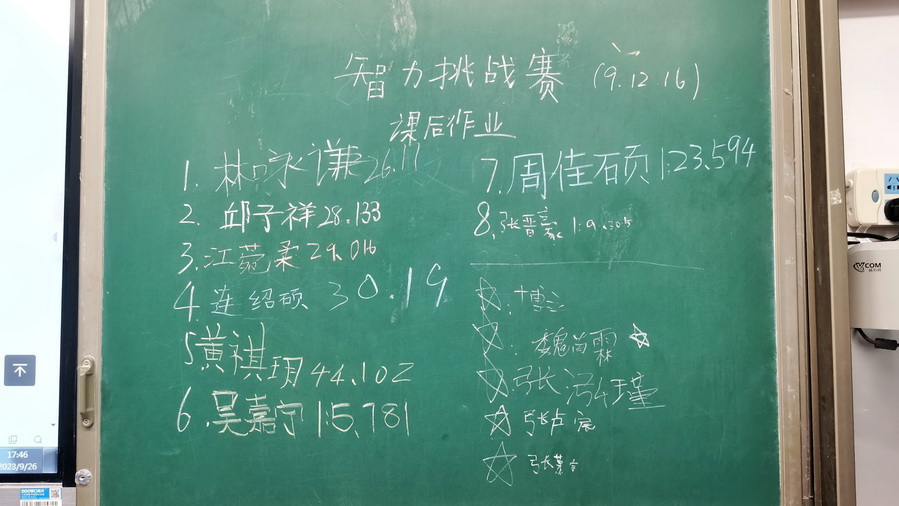 智力挑战赛 (9.12 16)
课后作业
1. 林咏谦 26.11
2. 邱子祥 28.133
3. 江菀柔 29.016
4 连绍硕 30.19
5 黄祺玥 44.102
6. 吴嘉宁 1:5.781
7. 周佳硕 1:23.594
8. 张晋豪 1:9
博
魏尚霖
张 瑾
张卢宸
张慕
COM
17:46
2023/9/26